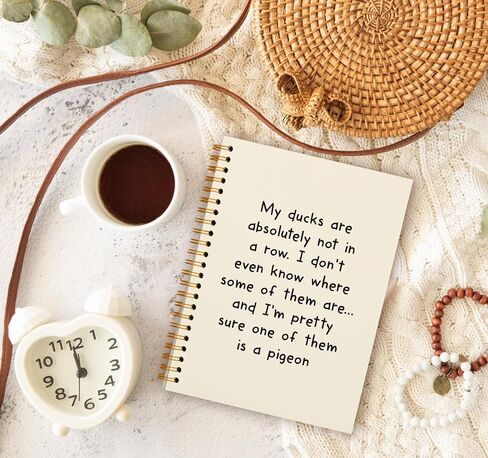 My ducks are
absolutely not in
a row. I don't
even know where
some of them are...
and I'm pretty
sure one of them
is a pigeon
12
1
2
3
4
5
6
7
8
9
10
11